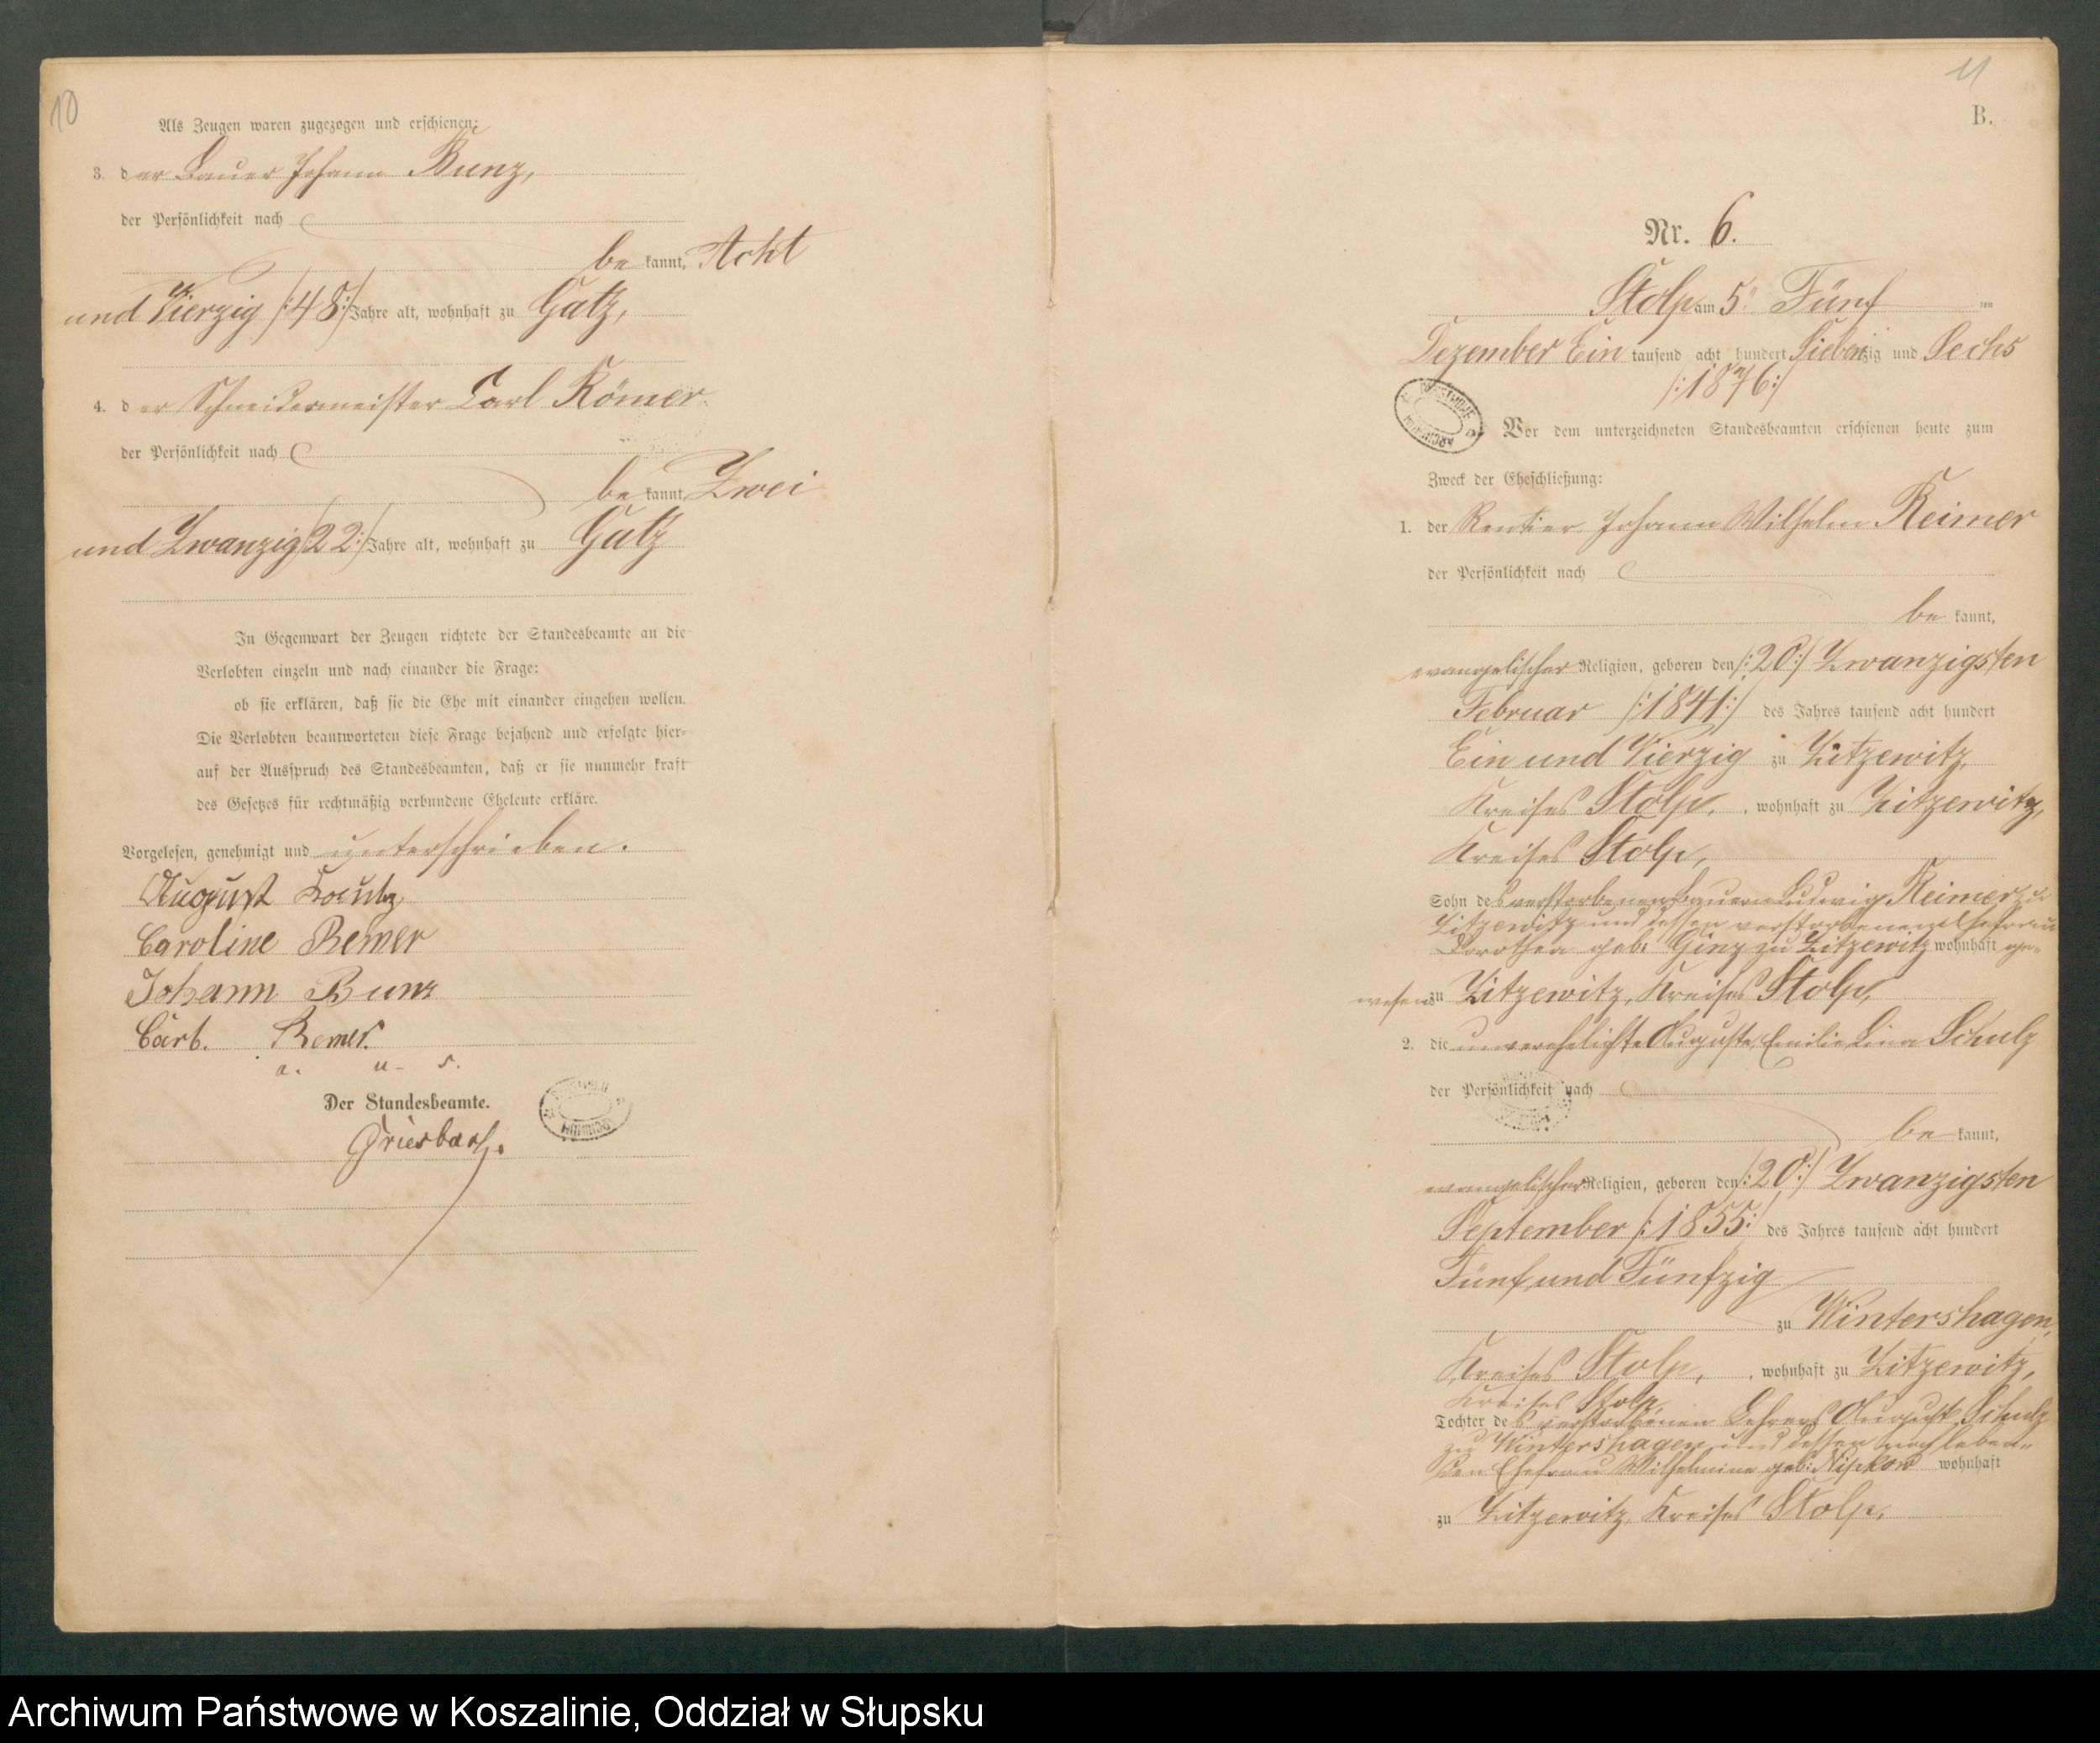 10
Als Zeugen waren zugezogen und erschienen:
3. der Bauer Johann Bunz,
der Persönlichkeit nach
bekannt, Acht
und Vierzig /:48:/ Jahre alt, wohnhaft zu Gatz,
4. der Schneidermeister Carl Römer
der Persönlichkeit nach
bekannt, Zwei
und Zwanzig /:22:/ Jahre alt, wohnhaft zu Gatz
In Gegenwart der Zeugen richtete der Standesbeamte an die
Verlobten einzeln und nach einander die Frage:
ob sie erklären, daß sie die Ehe mit einander eingehen wollen.
Die Verlobten beantworteten diese Frage bejahend und erfolgte hier-
auf der Ausspruch des Standesbeamten, daß er sie nunmehr kraft
des Gesetzes für rechtmäßig verbundene Eheleute erkläre.
Vorgelesen, genehmigt und unterschrieben.
August
Caroline Remer
Johann Bunz
Carl. Remer.
a. u. s.
Der Standesbeamte.
Griesbach.
11
B.
Nr. 6.
Stolp am 5. Fünften
Dezember Ein tausend acht hundert Siebenzig und Sechs
/:1876:/
Vor dem unterzeichneten Standesbeamten erschienen heute zum
Zweck der Eheschließung:
1. der Rentier Johann Wilhelm Reimer
der Persönlichkeit nach
bekannt,
evangelischer Religion, geboren den /:20:/ Zwanzigsten
Februar /:1841:/ des Jahres tausend acht hundert
Ein und Vierzig zu Zitzewitz,
Kreises Stolp, wohnhaft zu Zitzewitz,
Kreises Stolp,
Sohn des verstorbenen Bauern Ludwig Reimer zu
Zitzewitz und dessen verstorbenen Ehefrau
Dorothea geb: Ginz zu Zitzewitz wohnhaft ge-
wesen zu Zitzewitz, Kreises Stolp,
2. die unverehelichte Auguste Emilie Lina Schulz
der Persönlichkeit nach
bekannt,
evangelischer Religion, geboren den /:20:/ Zwanzigsten
September /:1855:/ des Jahres tausend acht hundert
Fünf und Fünfzig
zu Wintershagen,
Kreises Stolp, wohnhaft zu Zitzewitz,
Kreises Stolp,
Tochter des verstorbenen Lehrers August Schulz
zu Wintershagen und dessen noch leben-
den Ehefrau Wilhelmine geb: Nipkow wohnhaft
zu Zitzewitz, Kreises Stolp,
Archiwum Państwowe w Koszalinie, Oddział w Słupsku